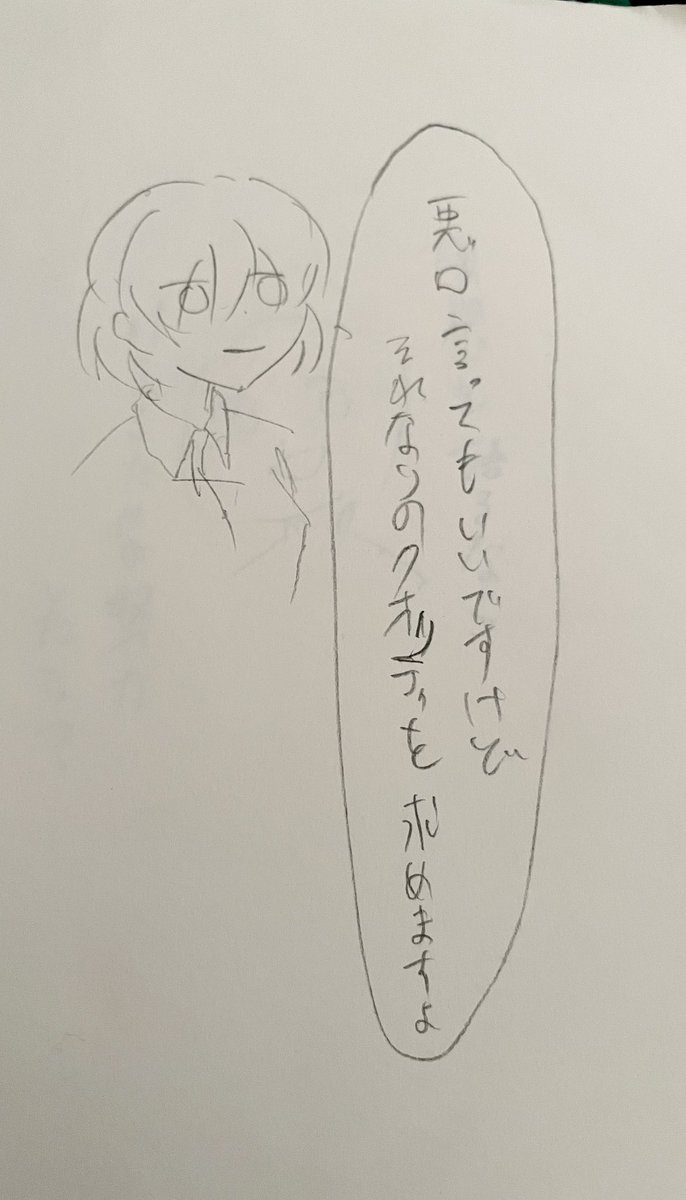 悪口言ってもいいですけど
それなりのクオリティを求めますよ